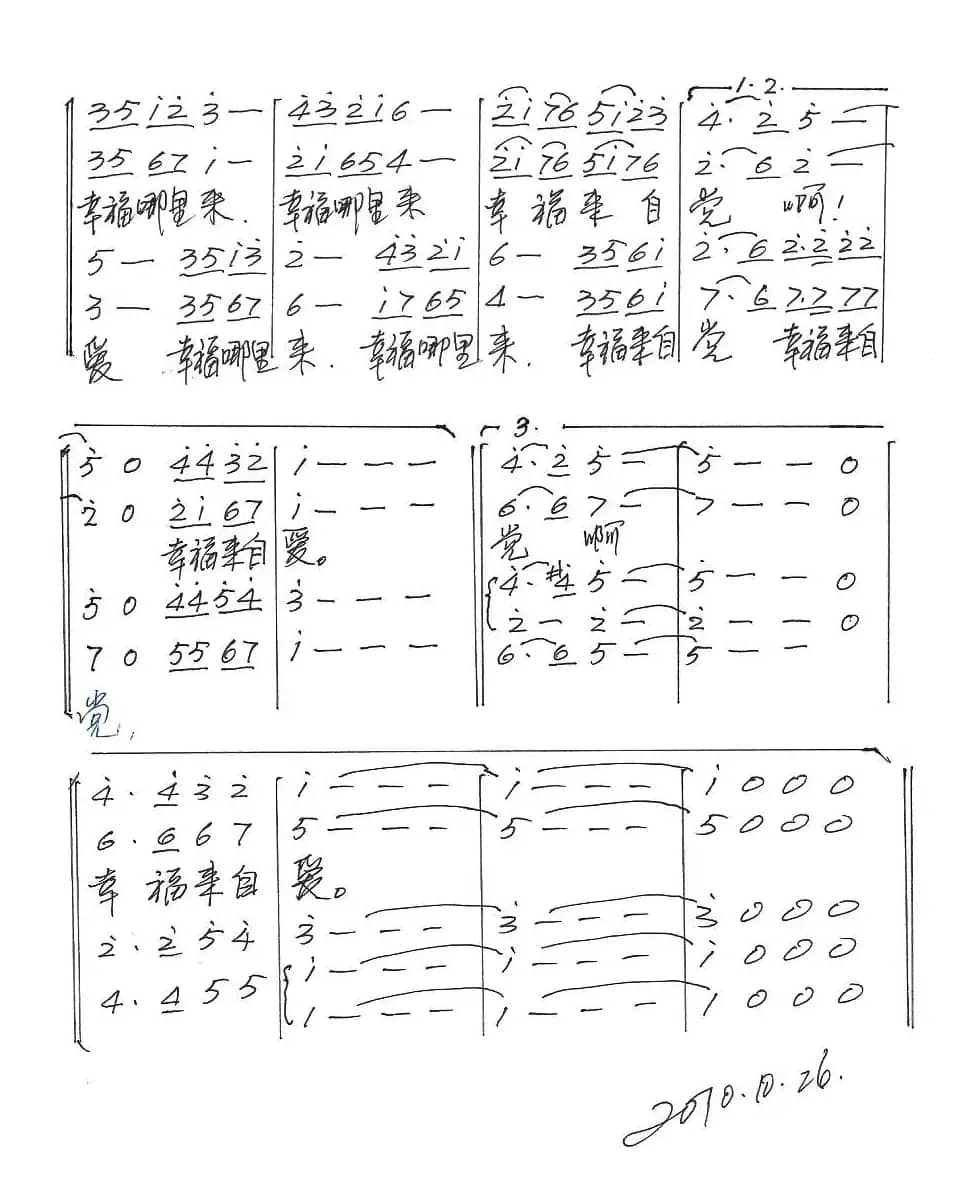 1. 2.
3 5 i 2̇ 3̇ — | 4̇ 3̇ 2̇ i 6 — | 2̇ i 7 6 5 i 2̇ 3̇ | 4̇· 2̇ 5̇ —
3 5 6 7 i — | 2̇ i 6 5 4 — | 2̇ i 7 6 5 i 7 6 | 2̇· 6 2̇ —
幸福哪里来. 幸福哪里来 幸 福 来 自 党 啊!
5 — 3 5 i 3̇ | 2̇ — 4̇ 3̇ 2̇ i | 6 — 3 5 6 i | 2̇· 6 2̇· 2̇ 2̇ 2̇
3 — 3 5 6 7 | 6 — i 7 6 5 | 4 — 3 5 6 i | 7· 6 7· 7 7 7
爱 幸福哪里 来. 幸福哪里 来. 幸福来自 党 幸福来自
3.
5̇ 0 4̇ 4̇ 3̇ 2̇ | i — — — || 4̇· 2̇ 5̇ — | 5̇ — — 0
2̇ 0 2̇ i 6 7 | i — — — || 6· 6 7 — | 7 — — 0
幸福来自 爱。 党 啊
5̇ 0 4̇ 4̇ 5̇ 4̇ | 3̇ — — — || 4̇· #4̇ 5̇ — | 5̇ — — 0
2̇ — 2̇ — | 2̇ — — 0
7 0 5 5 6 7 | i — — — || 6· 6 5 — | 5 — —
党,
4̇· 4̇ 3̇ 2̇ | i — — — | i — — — | i 0 0 0
6· 6 6 7 | 5 — — — | 5 — — — | 5 0 0 0
幸 福来自 爱。
2̇· 2̇ 5̇ 4̇ | 3̇ — — — | 3̇ — — — | 3̇ 0 0 0
i — — — | i — — — | i 0 0 0
4· 4 5 5 | 1 — — — | 1 — — — | 1 0 0 0
2010.10.26.